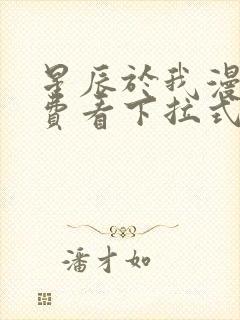 星辰於我漫
费看下拉式
潘才如